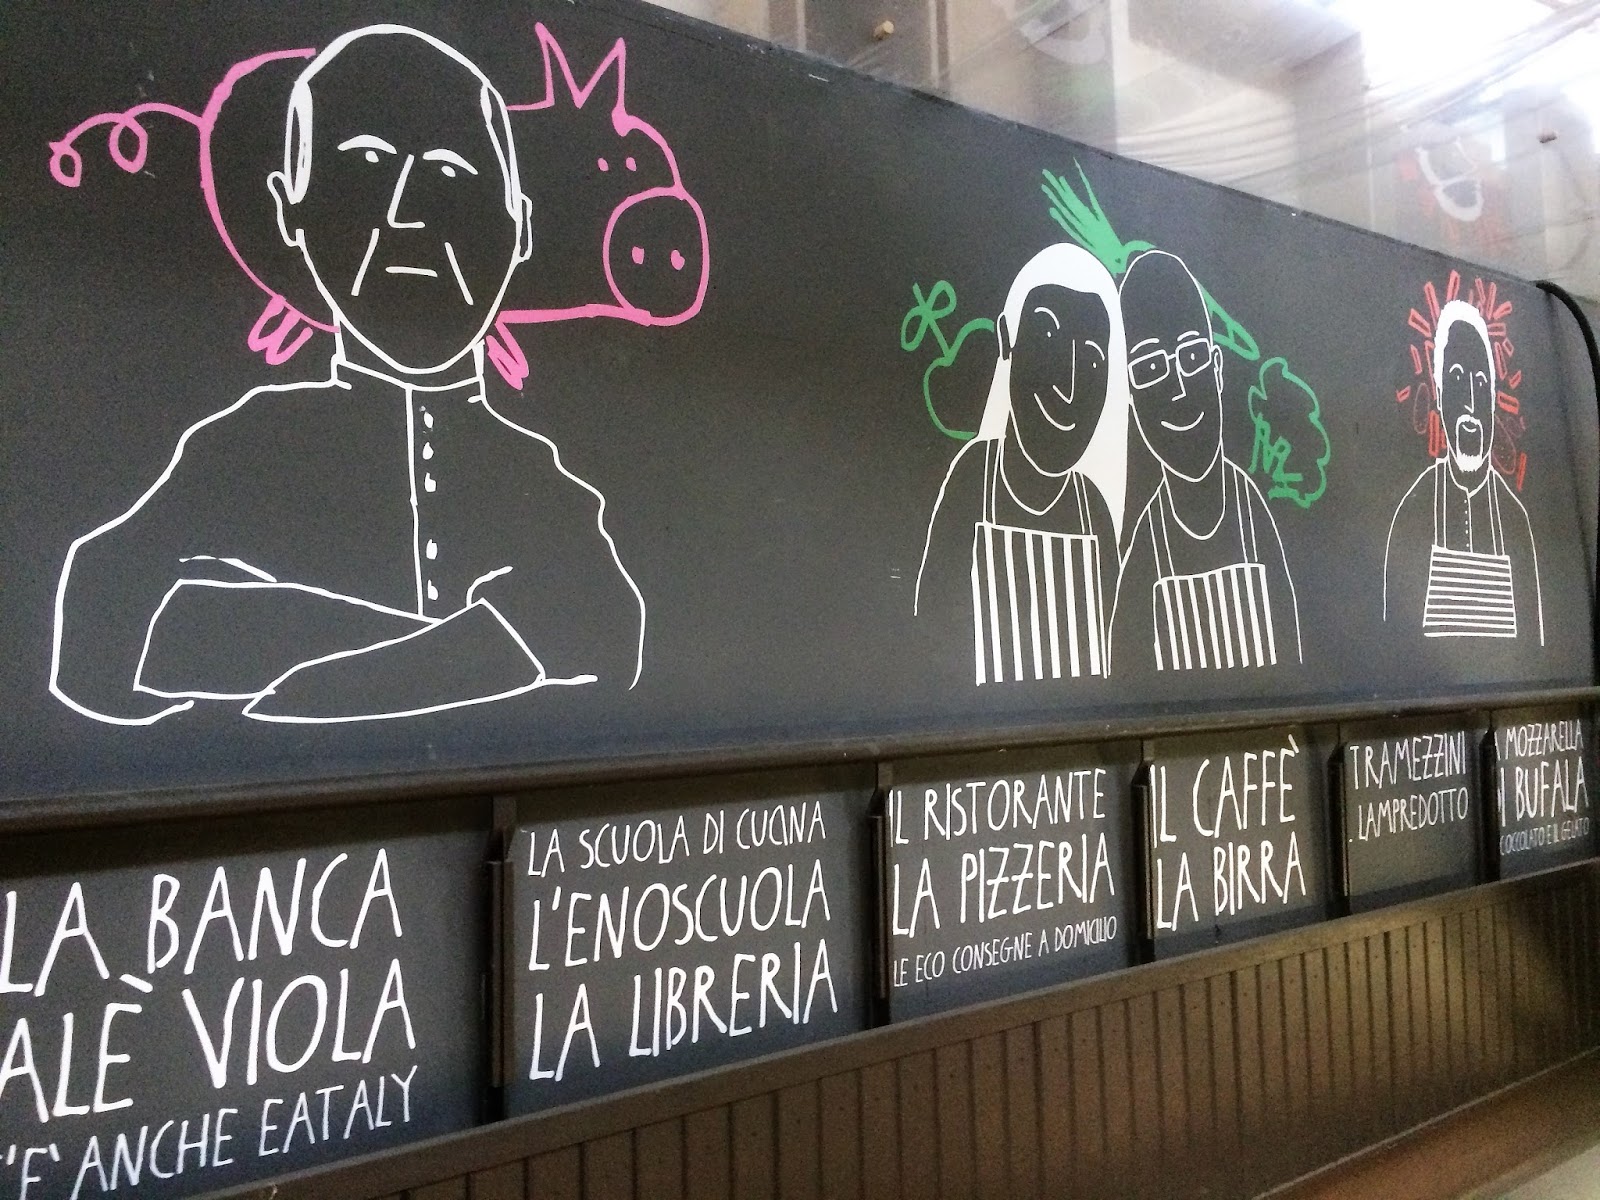 LA BANCA
ALÈ VIOLA
ANCHE EATALY
LA SCUOLA DI CUCINA
L'ENOSCUOLA
LA LIBRERIA
IL RISTORANTE
LA PIZZERIA
LE ECO CONSEGNE A DOMICILIO
IL CAFFÈ
LA BIRRA
TRAMEZZINI
LAMPREDOTTO
MOZZARELLA
BUFALA
CIOCCOLATO E IL GELATO